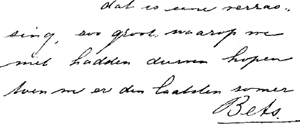 dat is eene verras-
sing, zoo groot waarop we
niet hadden durven hopen
toen we er den laatsten zomer
Bets.